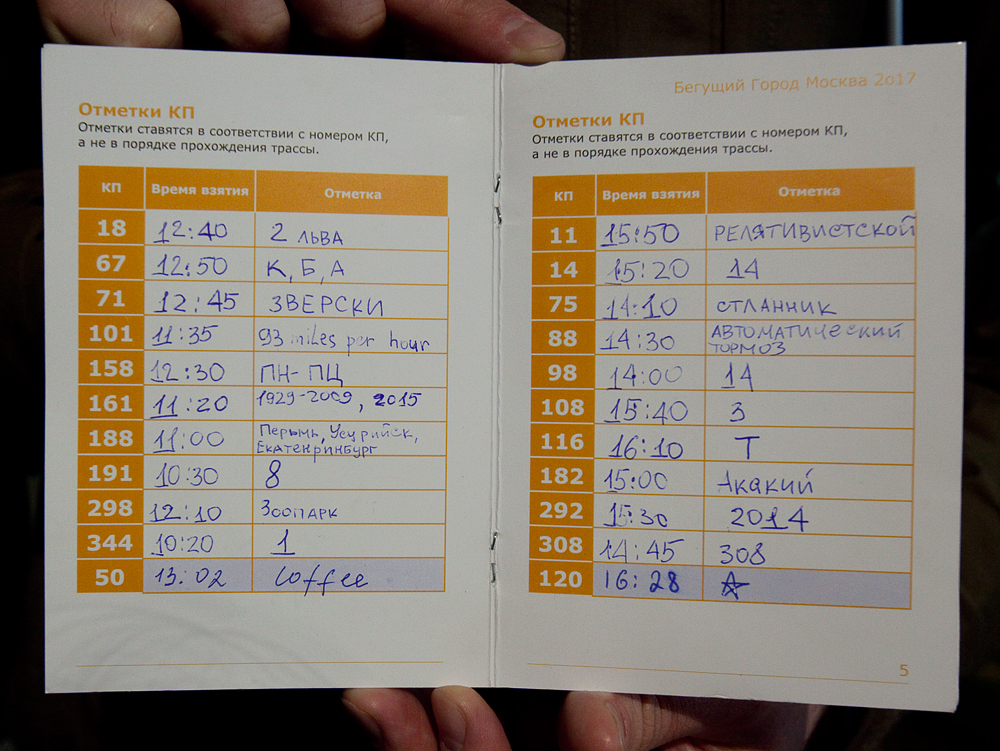 Отметки КП
Отметки ставятся в соответствии с номером КП,
а не в порядке прохождения трассы.
КП Время взятия Отметка
18 12:40 2 ЛЬВА
67 12:50 К, Б, А
71 12:45 ЗВЕРСКИ
101 11:35 93 miles per hour
158 12:30 ПН-ПЦ
161 11:20 1929-2009, 2015
188 11:00 Пермь, Уссурийск,
Екатеринбург
191 10:30 8
298 12:10 Зоопарк
344 10:20 1
50 13:02 Coffee
Бегущий Город Москва 2017
Отметки КП
Отметки ставятся в соответствии с номером КП,
а не в порядке прохождения трассы.
КП Время взятия Отметка
11 15:50 РЕЛЯТИВИСТСКОЙ
14 15:20 14
75 14:10 СТЛАННИК
88 14:30 АВТОМАТИЧЕСКИЙ
ТОРМОЗ
98 14:00 14
108 15:40 3
116 16:10 Т
182 15:00 Акакий
292 15:30 2014
308 14:45 308
120 16:28
5